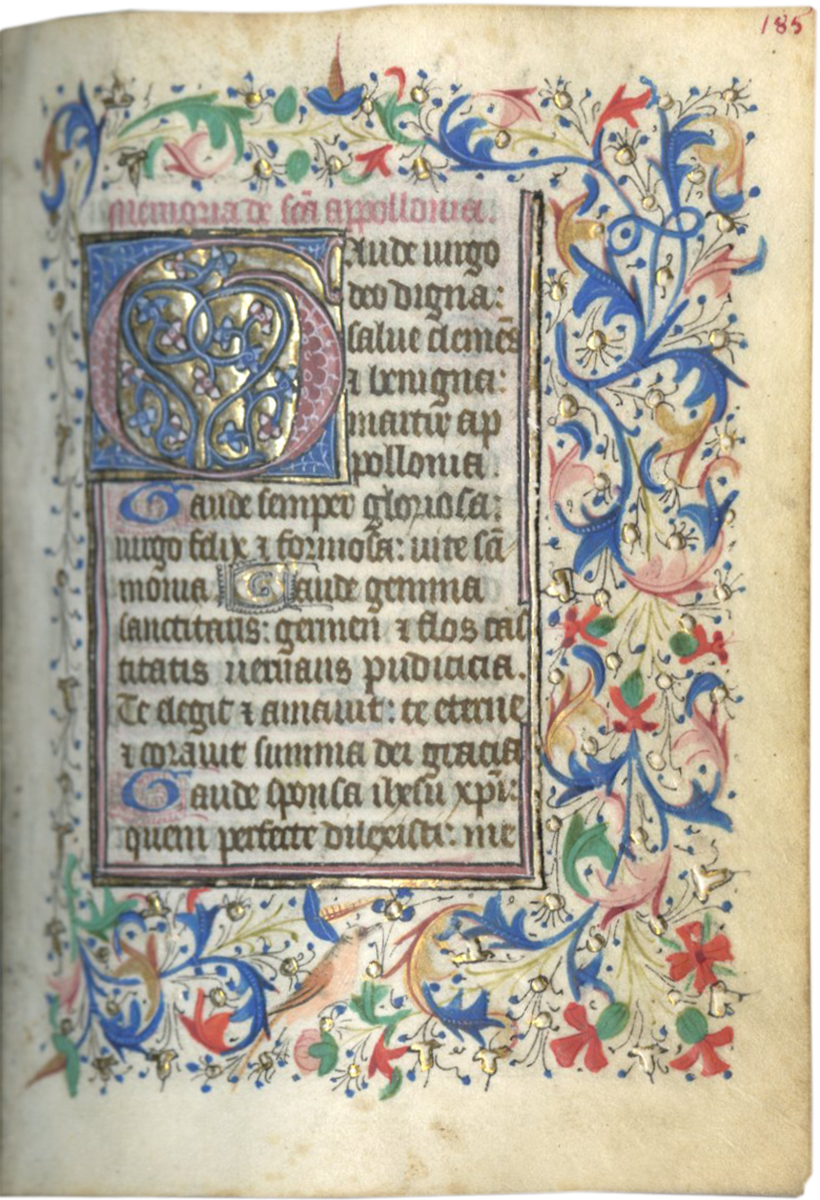 185
Memoria de sc̄a appollonia.
Gaude uirgo
deo digna:
salue clemēs
⁊ benigna:
martir ap
pollonia.
Gaude semper gloriosa:
uirgo felix ⁊ formosa: uite sā
monia Gaude gemma
sanctitatis: germen ⁊ flos cas
titatis uernans pudicicia.
Te elegit ⁊ amauit: te eterne
⁊ corauit summa dei gracia
Gaude sponsa ihesu xp̄i:
quem perfecte dilexisti: me